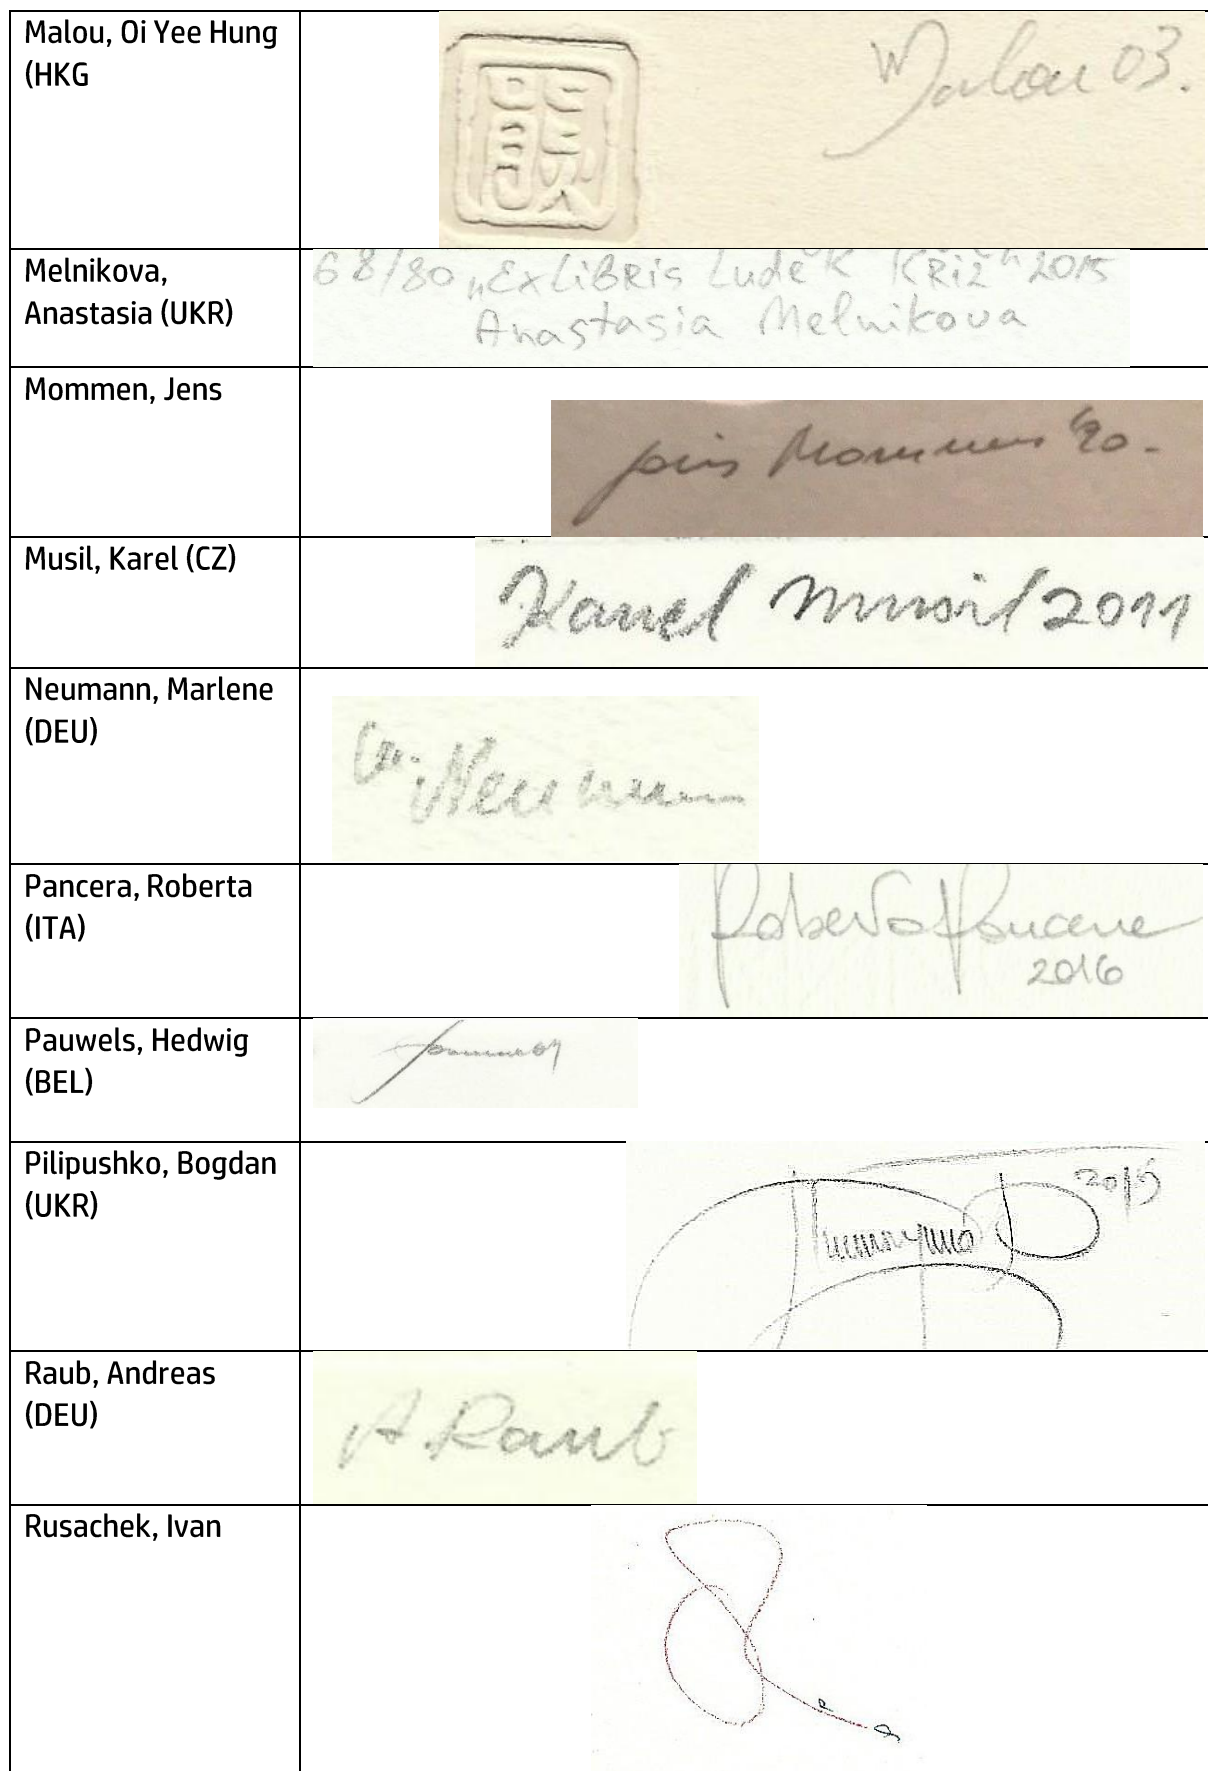 Malou, Oi Yee Hung
(HKG
Malou 03.
Melnikova,
Anastasia (UKR)
68/80 „ExLiBRis Luděk Křiž" 2015
Anastasia Melnikova
Mommen, Jens
Jens Mommen '90.
Musil, Karel (CZ)
Karel Musil 2011
Neumann, Marlene
(DEU)
M. Neumann
Pancera, Roberta
(ITA)
Roberta Pancera
2016
Pauwels, Hedwig
(BEL)
Pilipushko, Bogdan
(UKR)
2015
Raub, Andreas
(DEU)
A. Raub
Rusachek, Ivan